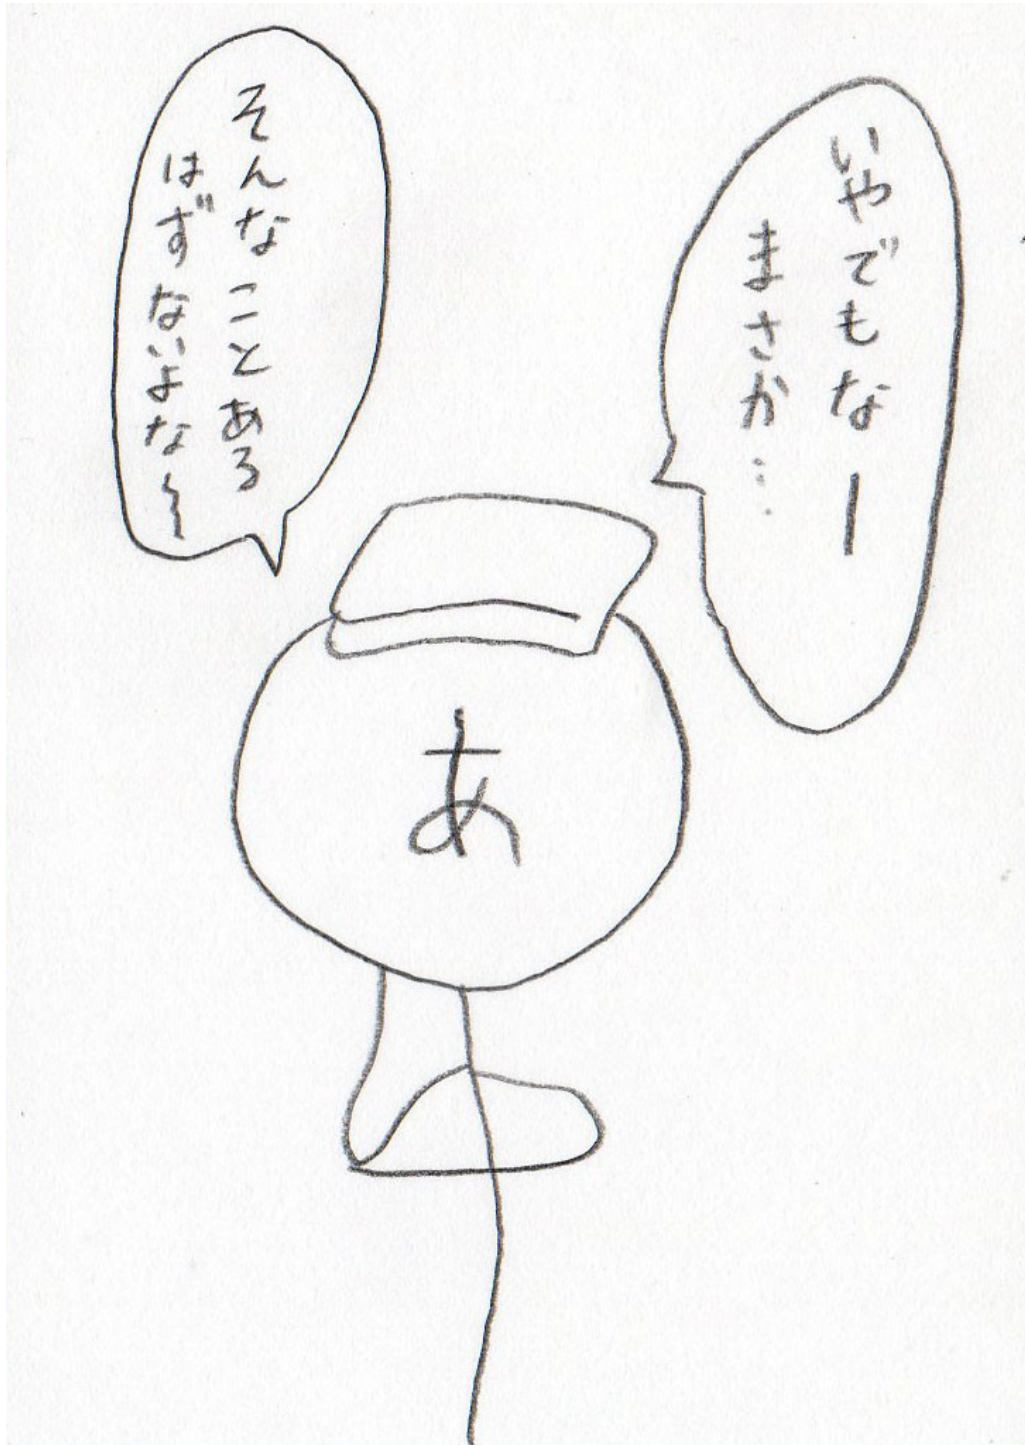 いやでもなー
まさか…
そんなことある
はずないよな〜
あ